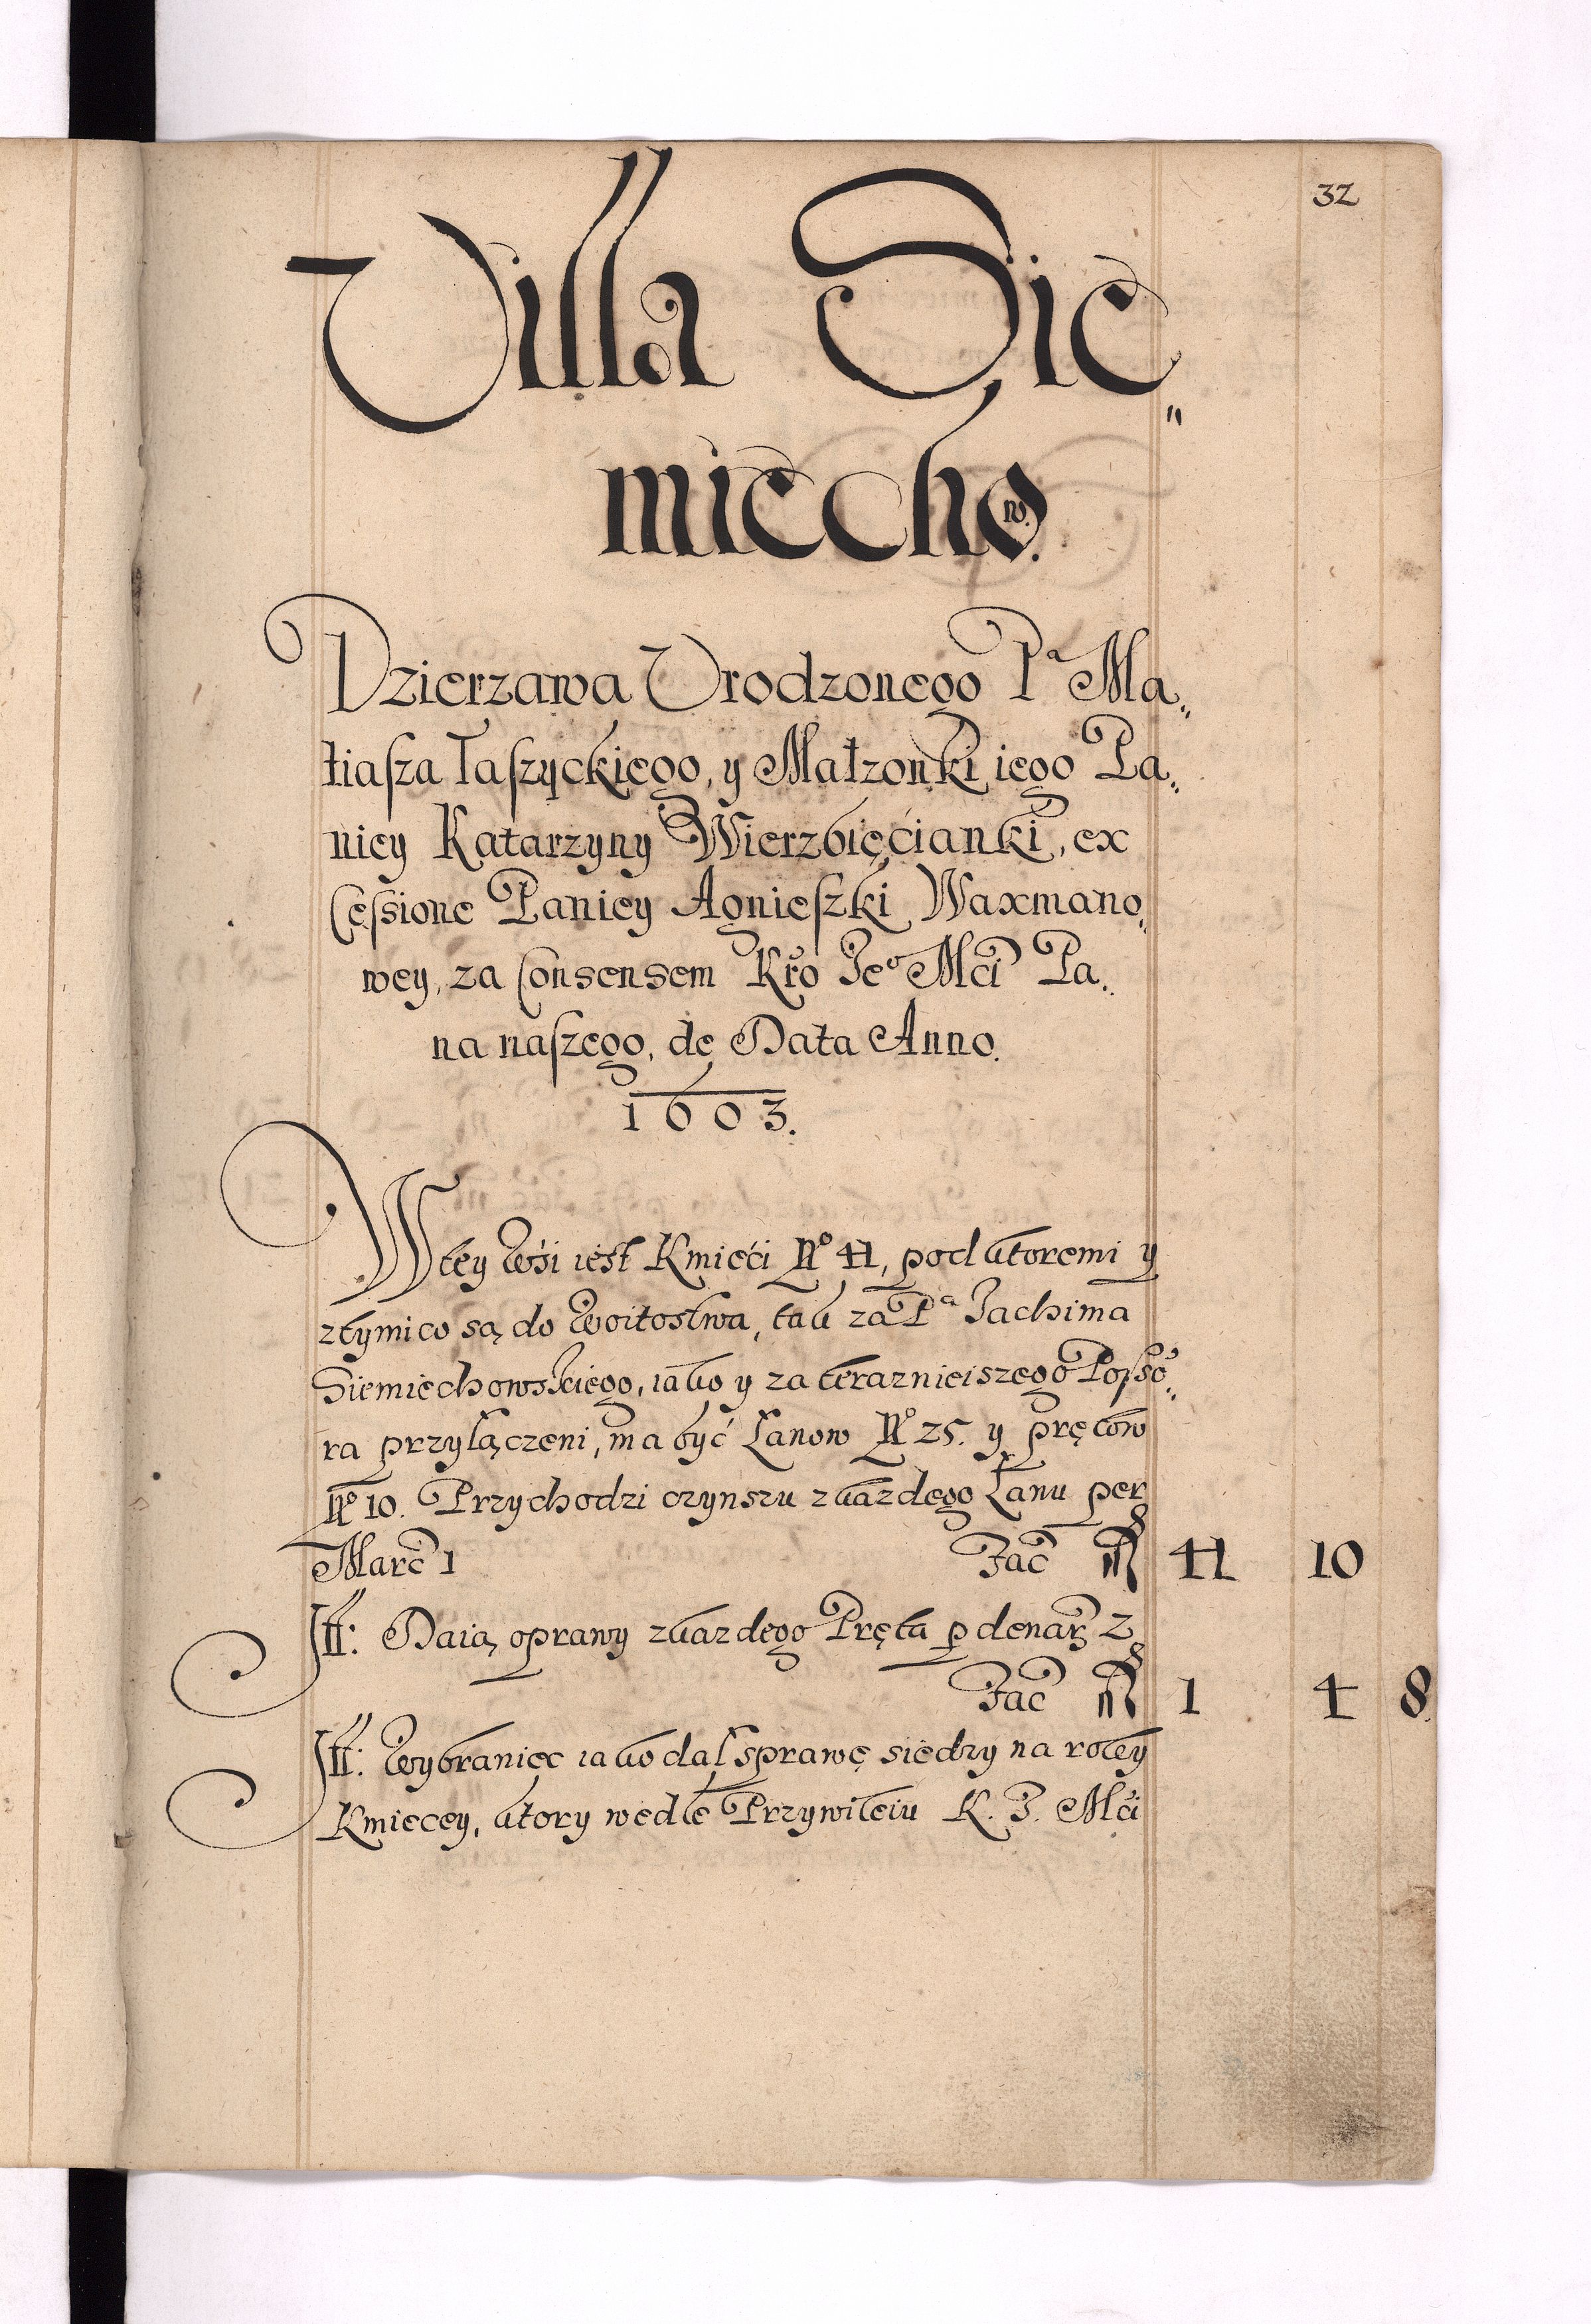 32
Villa Sie„
miecho
w.
Dzierzawa Vrodzonego Pª Ma„
tiasza Taszyckiego, y Małzonki iego Pa„
niey Katarzyny Wierzbięćianki, ex
Cessione Paniey Agnieszki Waxmano„
wey, za Consensem Kro Jeº Mci Pa„
na naszego, de Data Anno.
1603.
W tey wśi iest Kmieći Nº 41, pod ktoremi y
z tymi co są do Woitostwa, tak za Pª Jachima
Siemiechowskiego, iako y za terazniejszego Posso„
ra przyłączeni, ma być Łanow Nº 25. y prętow
Nº 10. Przychodzi czynszu z kazdego Łanu per
Marc 1 Fac 41 10
Itt: Daią oprawy z kazdego Pręta p denar 2
Fac 1 4 8.
Itt: Wybraniec iako dał sprawę siedzy na roley
Kmiecey, ktory wedle Przywileiu K. J. Mci